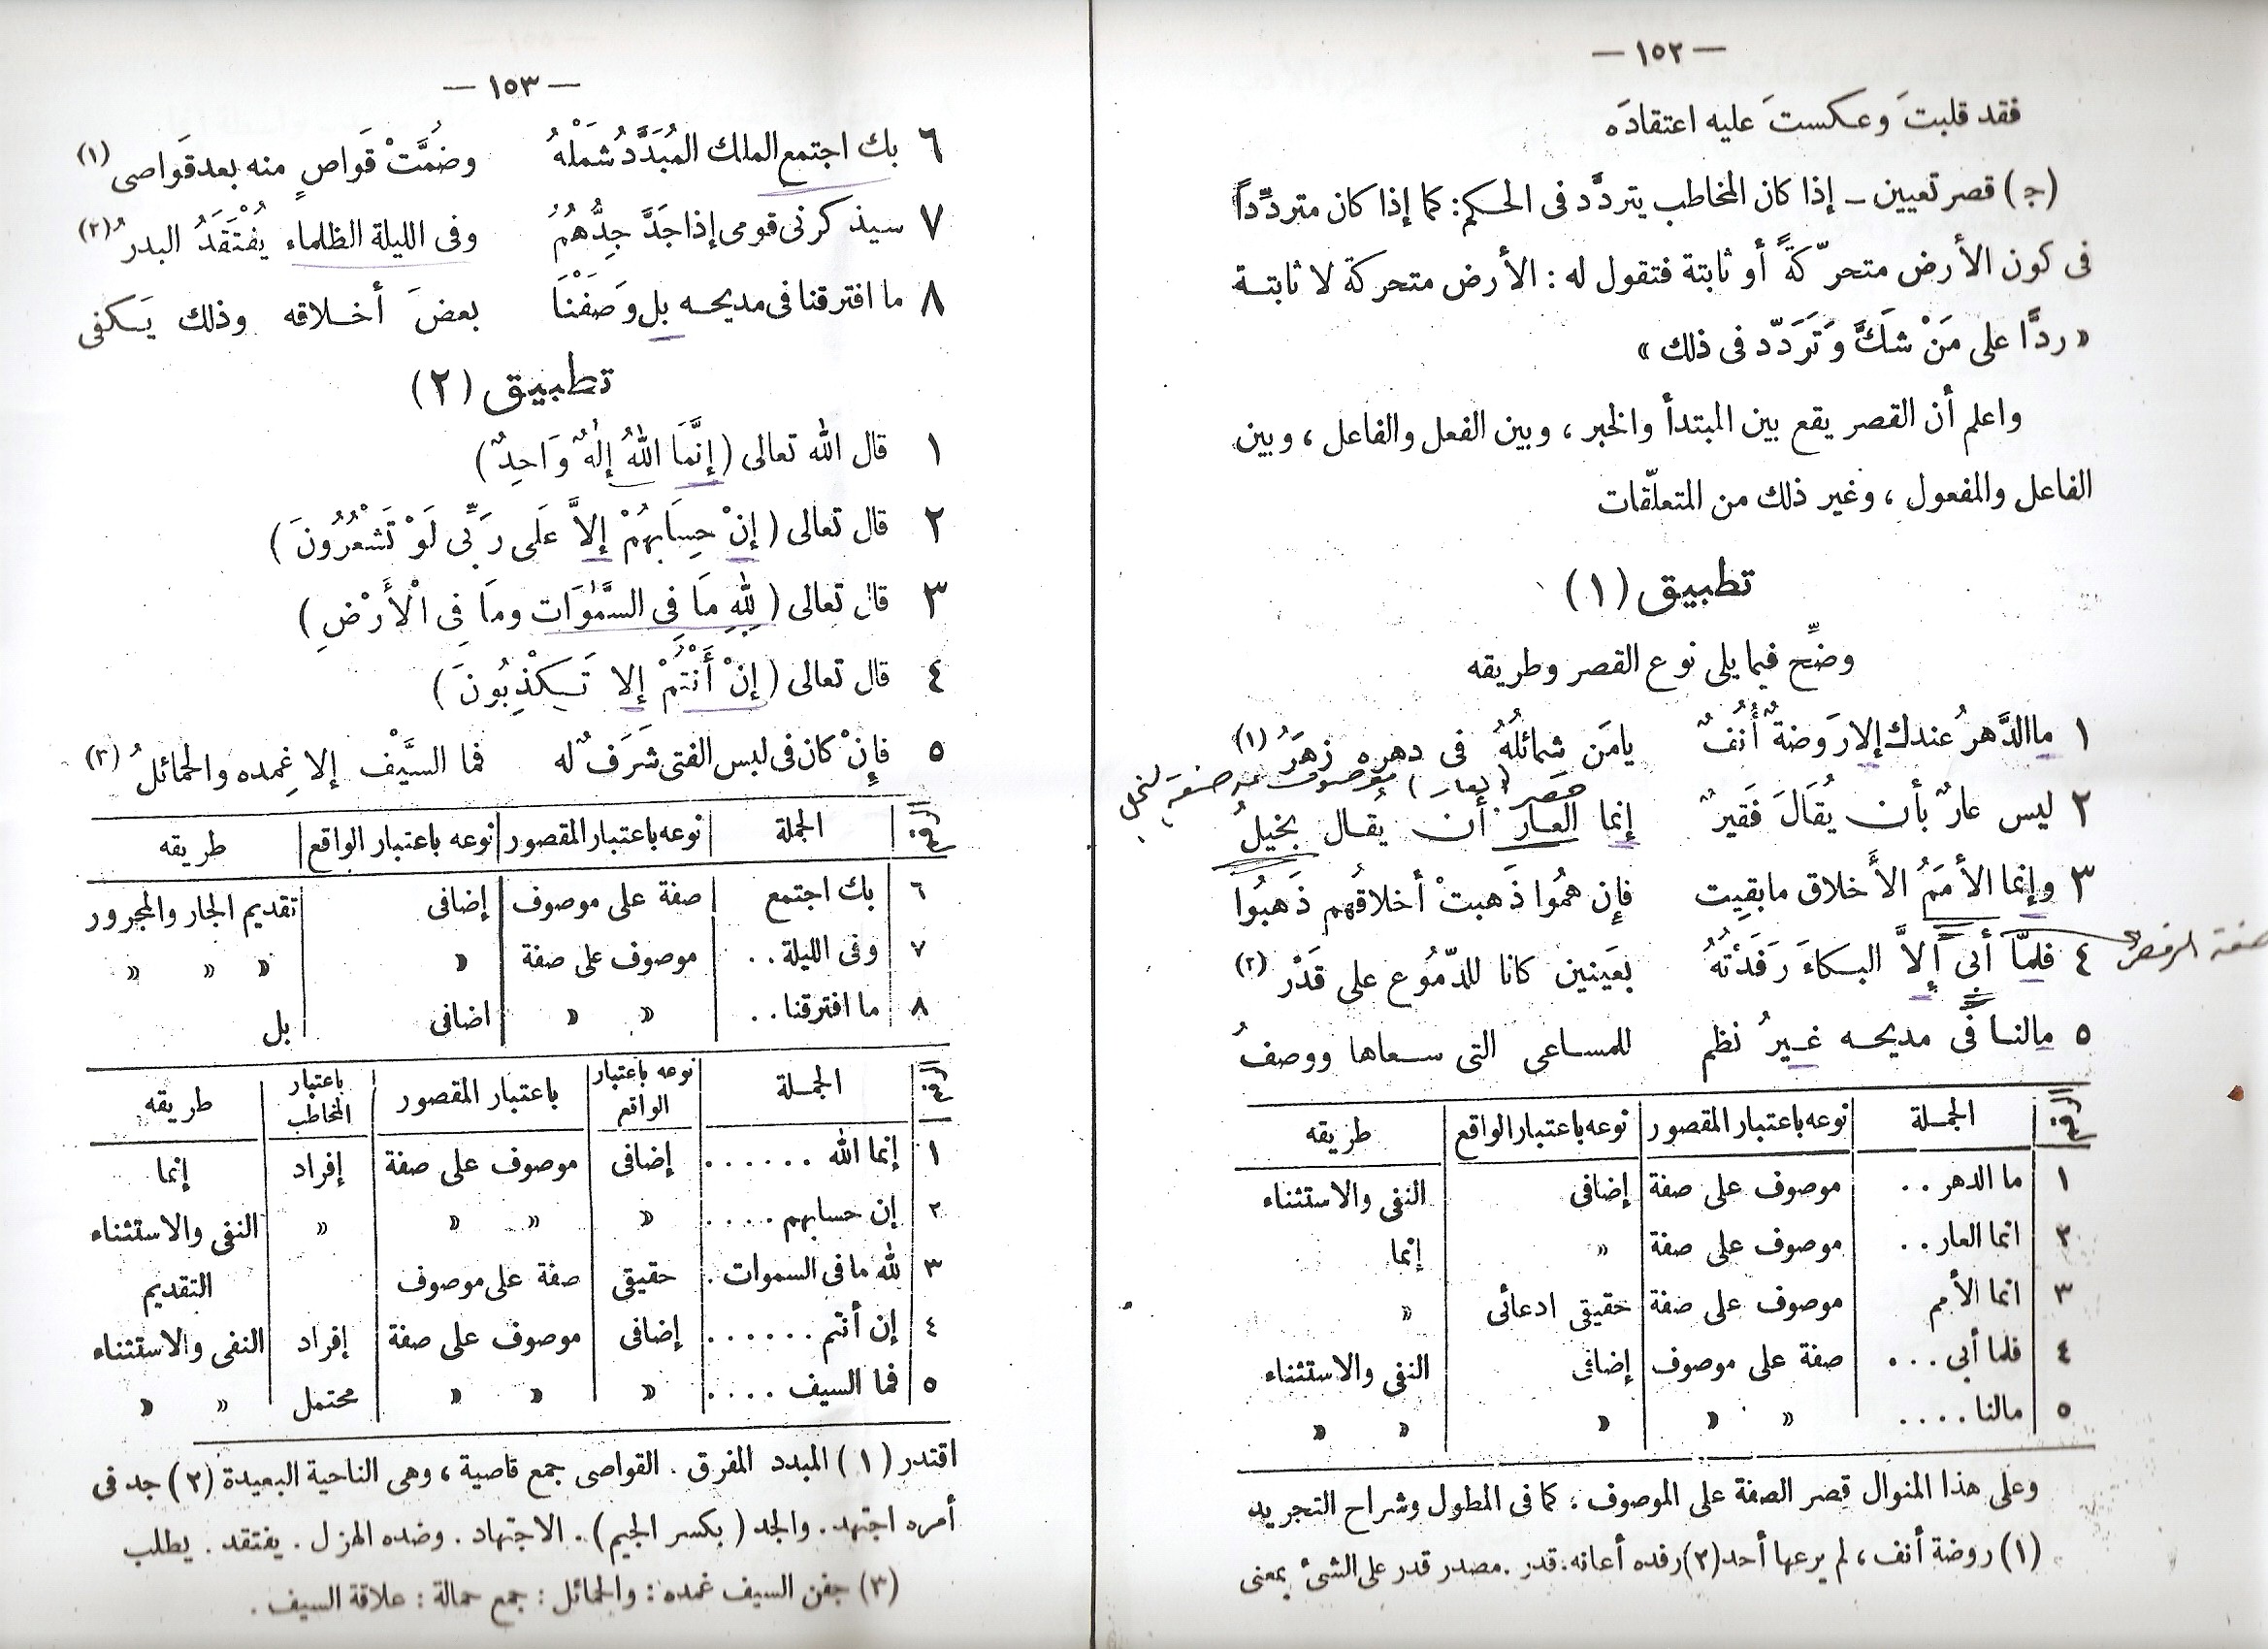 — ١٥٢ —
فقد قلبتَ وعكستَ عليه اعتقادَه
(ج) قصر تعيين – إذا كان المخاطب يتردَّد فى الحكم: كما إذا كان متردِّداً
فى كون الأرض متحرّكةً أو ثابتة فتقول له: الأرض متحركة لا ثابتة
« ردًّا على مَنْ شكَّ وَتَرَدّد فى ذلك »
واعلم أن القصر يقع بين المبتدأ والخبر ، وبين الفعل والفاعل ، وبين
الفاعل والمفعول ، وغير ذلك من المتعلّقات
تطبيق (١)
وضِّح فيما يلى نوع القصر وطريقه
١ ما الدَّهرُ عندك إلا رَوضةٌ أُنُفٌ يامَن شمائلُهُ فى دهره زهَرُ (١)
قصر (العار) موصوف
٢ ليس عارٌ بأن يُقَالَ فَقيرٌ إنما العار أن يُقال بخيلُ
٣ وإنما الأمَمُ الأَخلاق مابقِيت فإن همُوا ذَهبتْ أخلاقُهم ذَهبُوا
٤ فلمَّا أبى إلاَّ البكاءَ رَفَدْتُهُ بعَينين كانا للدّمُوع على قَدْر (٢)
٥ مالنا فى مديحه غيرُ نظم للمساعى التى سعاها ووصفُ
الرقم | الجملة | نوعه باعتبار المقصور | نوعه باعتبار الواقع | طريقه
١ | ما الدهر .. | موصوف على صفة | إضافى | النفى والاستثناء
٢ | انما العار .. | موصوف على صفة | » | إنما
٣ | انما الأمم | موصوف على صفة | حقيقى ادعائى | »
٤ | فلما أبى ... | صفة على موصوف | إضافى | النفى والاستثناء
٥ | مالنا .... | » » | » | » »
وعلى هذا المنوال قصر الصفة على الموصوف ، كما فى المطول وشراح التجريد
(١) روضة أنف ، لم يرعها أحد (٢) رفده أعانه. قدر . مصدر قدر على الشىء بمعنى
— ١٥٣ —
٦ بك اجتمع الملك المُبَدَّدُ شَمْلُهُ وضُمَّتْ قَواصٍ منه بعد قَواصى (١)
٧ سيذكرنى قومى إذا جَدَّ جِدُّهُمُ وفى الليلة الظلماء يُفْتَقَدُ البدرُ (٢)
٨ ما افترقنا فى مديحه بل وَصَفْنَا بعضَ أخلاقه وذلك يَكفى
تطبيق (٢)
١ قال الله تعالى (إنَّمَا اللهُ إلٰهٌ وَاحِدٌ)
٢ قال تعالى (إنْ حِسَابهُمْ إلاَّ عَلَى رَبِّى لَوْ تَشْعُرُونَ)
٣ قال تعالى (لِلهِ مَا فى السَّمٰوَات ومَا فِى الْأَرْضِ)
٤ قال تعالى (إنْ أَنْتُمْ إلا تَكْذِبُونَ)
٥ فإنْ كان فى لبس الفتى شَرَفٌ له فما السَّيْف إلا غِمده والحمائلُ (٣)
الرقم | الجملة | نوعه باعتبار المقصور | نوعه باعتبار الواقع | طريقه
٦ | بك اجتمع | صفة على موصوف | إضافى | تقديم الجار والمجرور
٧ | وفى الليلة .. | موصوف على صفة | » | » » »
٨ | ما افترقنا .. | » » | اضافى | بل
الرقم | الجملة | نوعه باعتبار الواقع | باعتبار المقصور | باعتبار المخاطب | طريقه
١ | إنما الله ...... | إضافى | موصوف على صفة | إفراد | إنما
٢ | إن حسابهم .... | » | » » | » | النفى والاستثناء
٣ | لله ما فى السموات . | حقيقى | صفة على موصوف | | التقديم
٤ | إن أنتم ...... | إضافى | موصوف على صفة | إفراد | النفى والاستثناء
٥ | فما السيف .... | » | » » | محتمل | » »
اقتدر (١) المبدد المفرق . القواصى جمع قاصية ، وهى الناحية البعيدة (٢) جد فى
أمره اجتهد . والجد (بكسر الجيم) . الاجتهاد . وضده الهزل . يفتقد . يطلب
(٣) جفن السيف غمده : والحمائل : جمع حمالة : علاقة السيف .